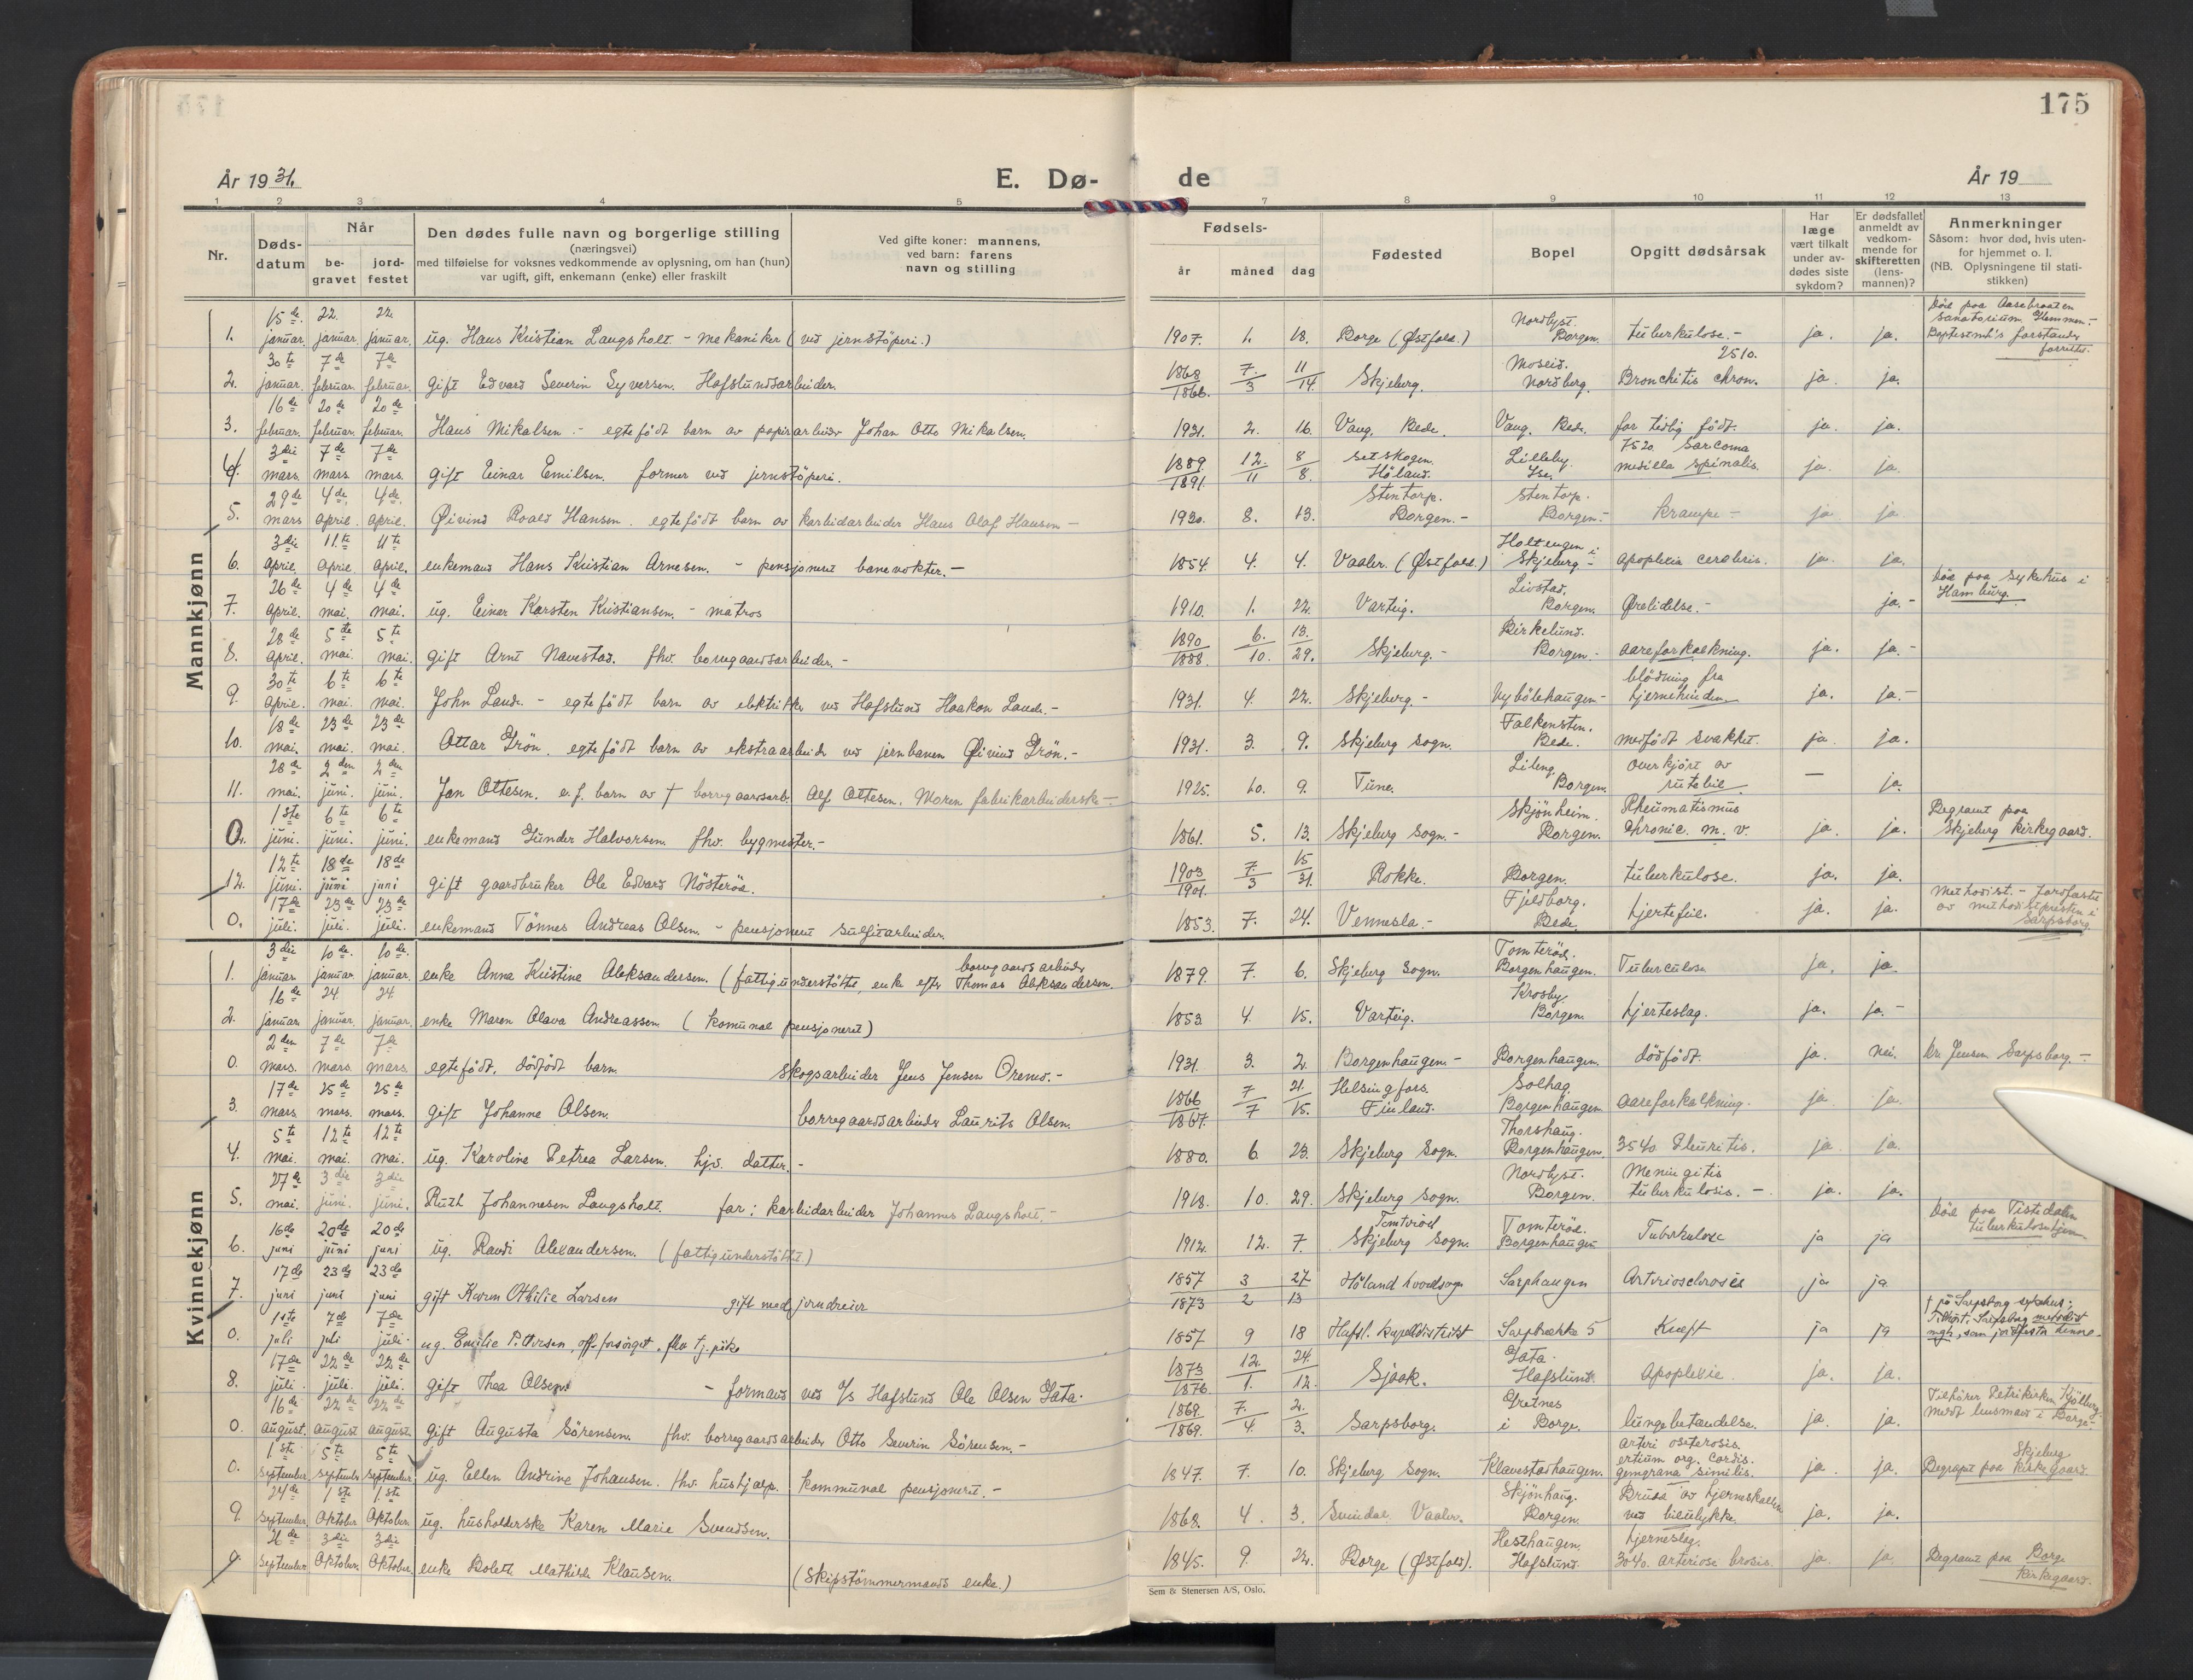 175
År 19 31.
E. Dø- de
År 19
1 2 3 4 5 7 8 9 10 11 12 13
Nr.
Døds-
datum
Når
be-
gravet
jord-
festet
Den dødes fulle navn og borgerlige stilling
(næringsvei)
med tilføielse for voksnes vedkommende av oplysning, om han (hun)
var ugift, gift, enkemann (enke) eller fraskilt
Ved gifte koner: mannens,
ved barn: farens
navn og stilling
Fødsels-
år måned dag
Fødested
Bopel
Opgitt dødsårsak
Har
læge
vært tilkalt
under av-
dødes siste
sykdom?
Er dødsfallet
anmeldt av
vedkom-
mende for
skifteretten
(lens-
mannen)?
Anmerkninger
Såsom: hvor død, hvis uten-
for hjemmet o. l.
(NB. Oplysningene til stati-
stikken)
Mannkjønn
1. 15de januar. 22. januar. 22. januar. ug. Hans Kristian Laugsholt - mekaniker (ved jernstöperi.) 1907. 1. 18. Borge (Østfold.) Nordbyst. Borgen. tuberkulose.- ja. ja. Död paa Aasebraaten sanatorium Baptistmh's forstander forrettet.
2. 30te januar. 7de februar. 7de februar. gift Edvard Severin Syversen. Hafslundsarbeider. 1868 7. 11 1866. 3 14. Skjeberg. Moseid. Nordberg. 2510. Bronchitis chron. ja. ja.
3. 16de februar. 20de februar. 20de februar. Hans Mikalsen. - egtefödt barn av papirarbeider Johan Otto Mikalsen. 1931. 2. 16. Vang. Bede. Vang. Bede. for tidlig födt. ja. ja.
4. 3die mars. 7de mars. 7de mars. gift Einar Emilsen. former ved jernstöperi. 1889 12. 8 1891. 11 8. Setskogen. Höland. Lilleby. Ise. 7520. Sarcoma medilla spinalis. ja. ja.
5. 29de mars 4de april. 4de april. Øivind Roald Hansen. egtefödt barn av karbidarbeider Hans Olaf Hansen - 1930. 8. 13. Stentorp. Borgen.- Stentorp. Borgen.- Krampe - ja ja
6. 3die april. 11.te april 11te april. enkemand Hans Kristian Arnesen. - pensjonert banevokter.- 1854. 4. 4. Vaaler. (Østfold.) Holtengen i Skjeberg - apoplexia cerebris. ja. ja.
7. 26de april. 4de mai. 4de mai. ug. Einar Karsten Kristiansen. - matros 1910. 1. 22. Varteig. Livstad. Borgen. Ørelidelse.- ja.- död paa sykehus i Hamburg.
8. 28de april. 5te mai. 5te mai. gift Arnt Navestad. fhv. borregaardsarbeider.- 1890 6. 13. 1888. 10. 29. Skjeberg.- Birkelund. Borgen.- aareforkalkning. ja. ja.-
9. 30te april. 6te mai. 6te mai. John Lande. - egtefödt barn av elektriker ved Hafslund Haakon Lande.- 1931. 4. 22. Skjeberg.- Nybölehaugen- blödning fra hjernehinden ja. ja.-
10. 18de mai. 23de mai. 23de mai. Ottar Grön. egtefödt barn av ekstraarbeider ved jernbanen Øivind Grön.- 1931. 3. 9. Skjeberg sogn. Falkensten. Bede. medfödt svakhet. ja. ja.
11. 28de mai. 2den juni. 2den juni. Jan Ottesen. e.f. barn av † borregaardsarb. Alf Ottesen. Moren fabrikarbeiderske- 1925. 10. 9. Tune. Lileng. Borgen. overkjört av rutebil - ja.
0. 1ste juni. 6te juni. 6te juni. enkemand Gunder Halvorsen. fhv. bygmester.- 1861. 5. 13. Skjeberg sogn.- Skjönheim. Borgen. Rheumatismus chronic. m. v. ja. ja. Begravet paa Skjeberg kirkegaard.
12. 12te juni. 18de juni 18de juni gift gaardbruker Ole Edvard Nösteröd. 1903 7. 15 1901. 3 31. Rokke. Borgen. tuberkulose. ja. ja.
0. 17de juli. 23de juli. 23de juli. enkemand Tönnes Andreas Olsen. - pensjonert sulfitarbeider. 1853. 7. 24. Vennesla.- Fjeldborg. Bede. hjertefeil. ja. ja. Methodist.- Jordfæstet av methodistpresten i Sarpsborg.
Kvinnekjønn
1. 3die januar 10de januar 10de januar. enke Anna Kristine Aleksandersen. (fattigunderstöttet, enke efter borregaardsarbeider Thomas Aleksandersen. 1879. 7. 6. Skjeberg sogn. Tomteröd. Borgenhaugen. Tuberculose ja. ja.
2. 16de januar 24 januar. 24 januar. enke Maren Olava Andreassen (komunal pensjonert) 1853. 4. 15. Varteig. Krosby. Borgen. hjerteslag. ja. ja.-
0. 2den mars. 7de mars. 7de mars egtefödt. dödfödt barn. skogsarbeider Jens Jensen Oremo.- 1931. 3. 2. Borgenhaugen.- Borgenhaugen. dödfödt. ja. nei. Dr. Jensen Sarpsborg.-
3. 17de mars. 25de mars. 25de mars. gift Johanne Olsen. borregaardsarbeider Laurits Olsen. 1866 7 21. 1867. 7 15. Helsingfors. Finland. Solhaug Borgenhaugen aareforkalkning. ja. ja.
4. 5te mai. 12te mai. 12te mai. ug. Karoline Petrea Larsen. hjv. datter.- 1880. 6 23. Skjeberg sogn. Thorshaug. Borgenhaugen. 3540. Pleuritis. ja. ja.
5. 27de mai. 3die juni. 3die juni. Ruth Johannesen Laugsholt. far: karbidarbeider Johannes Laugsholt.- 1918. 10. 29. Skjeberg sogn. Nordbyst. Borgen. Meningitis tuberkulosis.- ja. ja.
6. 16de juni 20de juni 20de juni ug. Randi Alexandersen. (fattigunderstöttet) 1912. 12. 7. Tomteröd Skjeberg sogn. Tomteröd. Borgenhaugen Tuberkulose ja ja död paa Tistedalen tuberkulosehjem
7. 17de juni 23de juni 23de juni gift Karen Othilie Larsen gift med jerndreier 1857 3 27 1873 2 13 Höland hovedsogn Sarphaugen Arteriosclerosis ja ja
0. 1ste juli 7de juli 7de juli. ug. Emilie Pettersen, off. forsörget, fhv tj.pike 1857 9 18 Hafsl. kapelldistrikt Sarpbrække 5 Kreft ja ja † på Sarpsborg sykehus; Tilhört Sarpsborg metodist mgh, som jordfestet henne.
8. 17de juli. 22de juli. 22de juli. gift Thea Olsen. - formand ved A/S Hafslund Ole Olsen Gata. 1873 12. 24. 1876 1. 12. Sjaak. Gata. Hafslund. Apoplexie. ja. ja.
0. 16de august. 22de august 22de august. gift Augusta Sörensen. fhv. borregaardsarbeider Otto Severin Sörensen.- 1869. 7. 2. 1869. 4. 3. Sarpsborg. Gretnes i Borge. lungebetændelse. ja. ja. Tilhörer Petrikirken
0. 1ste september 5te september 5te september. ug. Ellen Andrine Johansen. fhv. hushjælp. kommunal pensjonert.- 1847. 7. 10. Skjeberg sogn. Klavestadhaugen. ja. ja. Begravet paa Skjeberg kirkegaard.
9. 24de september. 1ste oktober 1.ste oktober. ug. husholderske Karen Marie Svendsen. 1868. 4. 3. Svindal Vaaler. Skjönhaug. Borgen. Brudd av hjerneskallen ved bilulykke. ja. ja.
0. 26de september. 3die oktober. 3die oktober. enke Bolette Mathilde Klausen. (skipstömmermands enke.) 1845. 9. 22. Borge (Østfold). Hesthaugen. Hafslund. hjerneslag. 3040. ja. ja. Begravet paa Borge kirkegaard.
Sem & Stenersen A/S, Oslo.